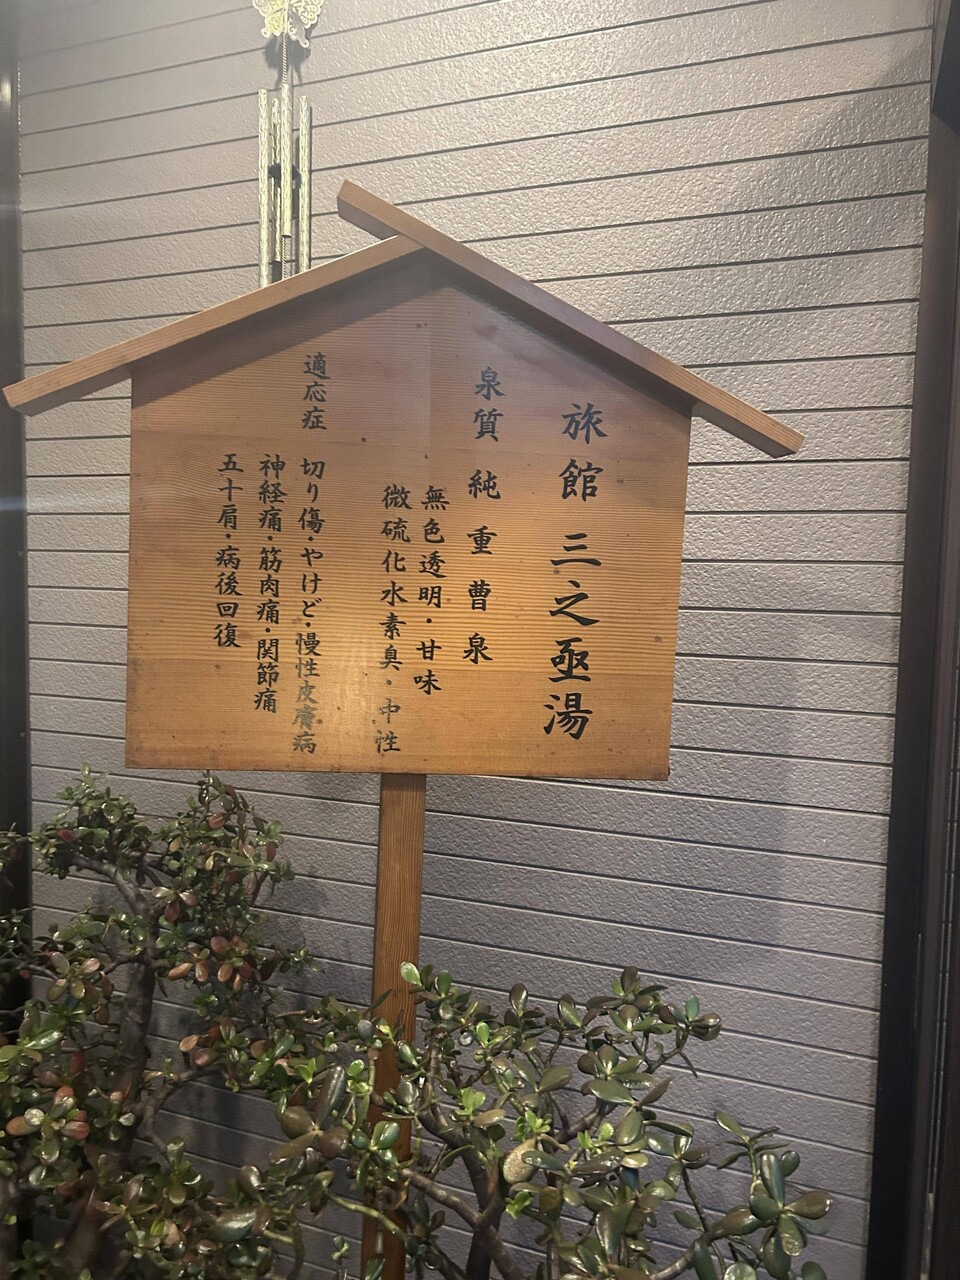 旅館 三之亟湯
泉質 純重曹泉
無色透明・甘味
微硫化水素臭・中性
適応症 切り傷・やけど・慢性皮膚病
神経痛・筋肉痛・関節痛
五十肩・病後回復